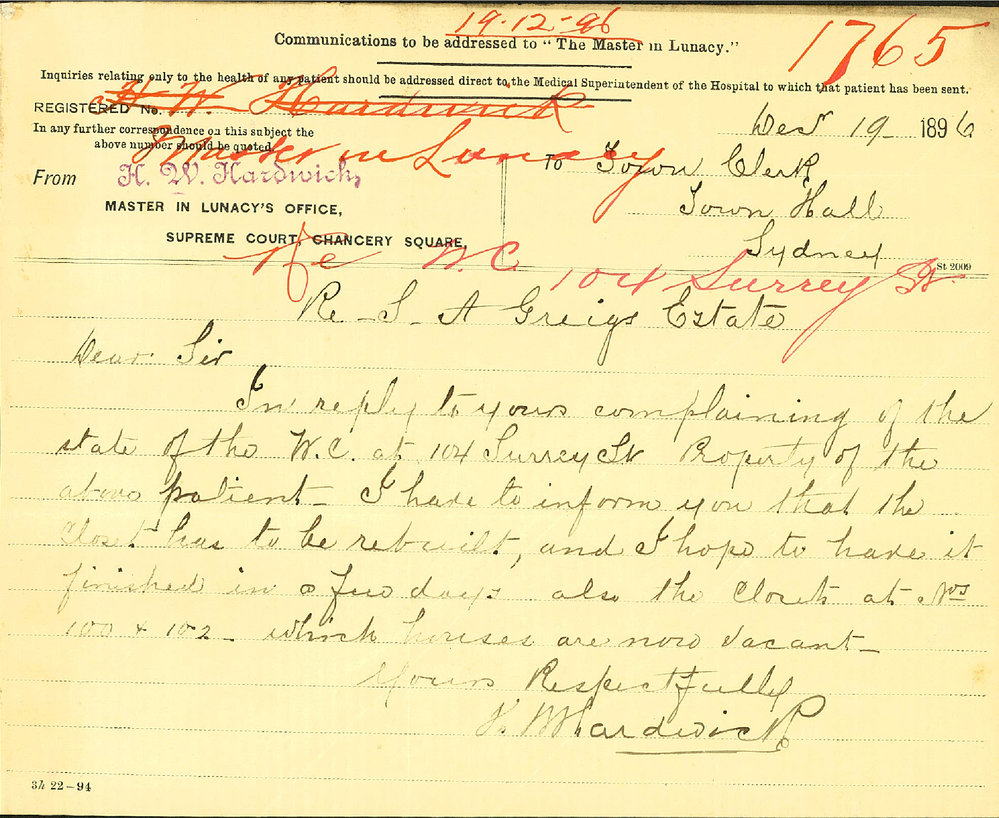 19-12-96
1765
Communications to be addressed to "The Master in Lunacy."
Inquiries relating only to the health of any patient should be addressed direct to the Medical Superintendent of the Hospital to which that patient has been sent.
H. W. Hardwick
REGISTERED No.
Decr 19 1896
In any further correspondence on this subject the
above number should be quoted
Master in Lunacy
From H. W. Hardwick,
To Town Clerk
MASTER IN LUNACY'S OFFICE,
Town Hall
SUPREME COURT, CHANCERY SQUARE,
Sydney
St 2009
Re W.C. 104 Surrey St
Re S A Greigs Estate
Dear Sir
In reply to yours complaining of the
state of the W.C. at 104 Surrey St Property of the
above patient - I have to inform you that the
Closet has to be rebuilt, and I hope to have it
finished in a few days also the Closets at Nos
100 & 102 - which houses are now vacant -
Yours Respectfully
H. W Hardwick
3h 22-94